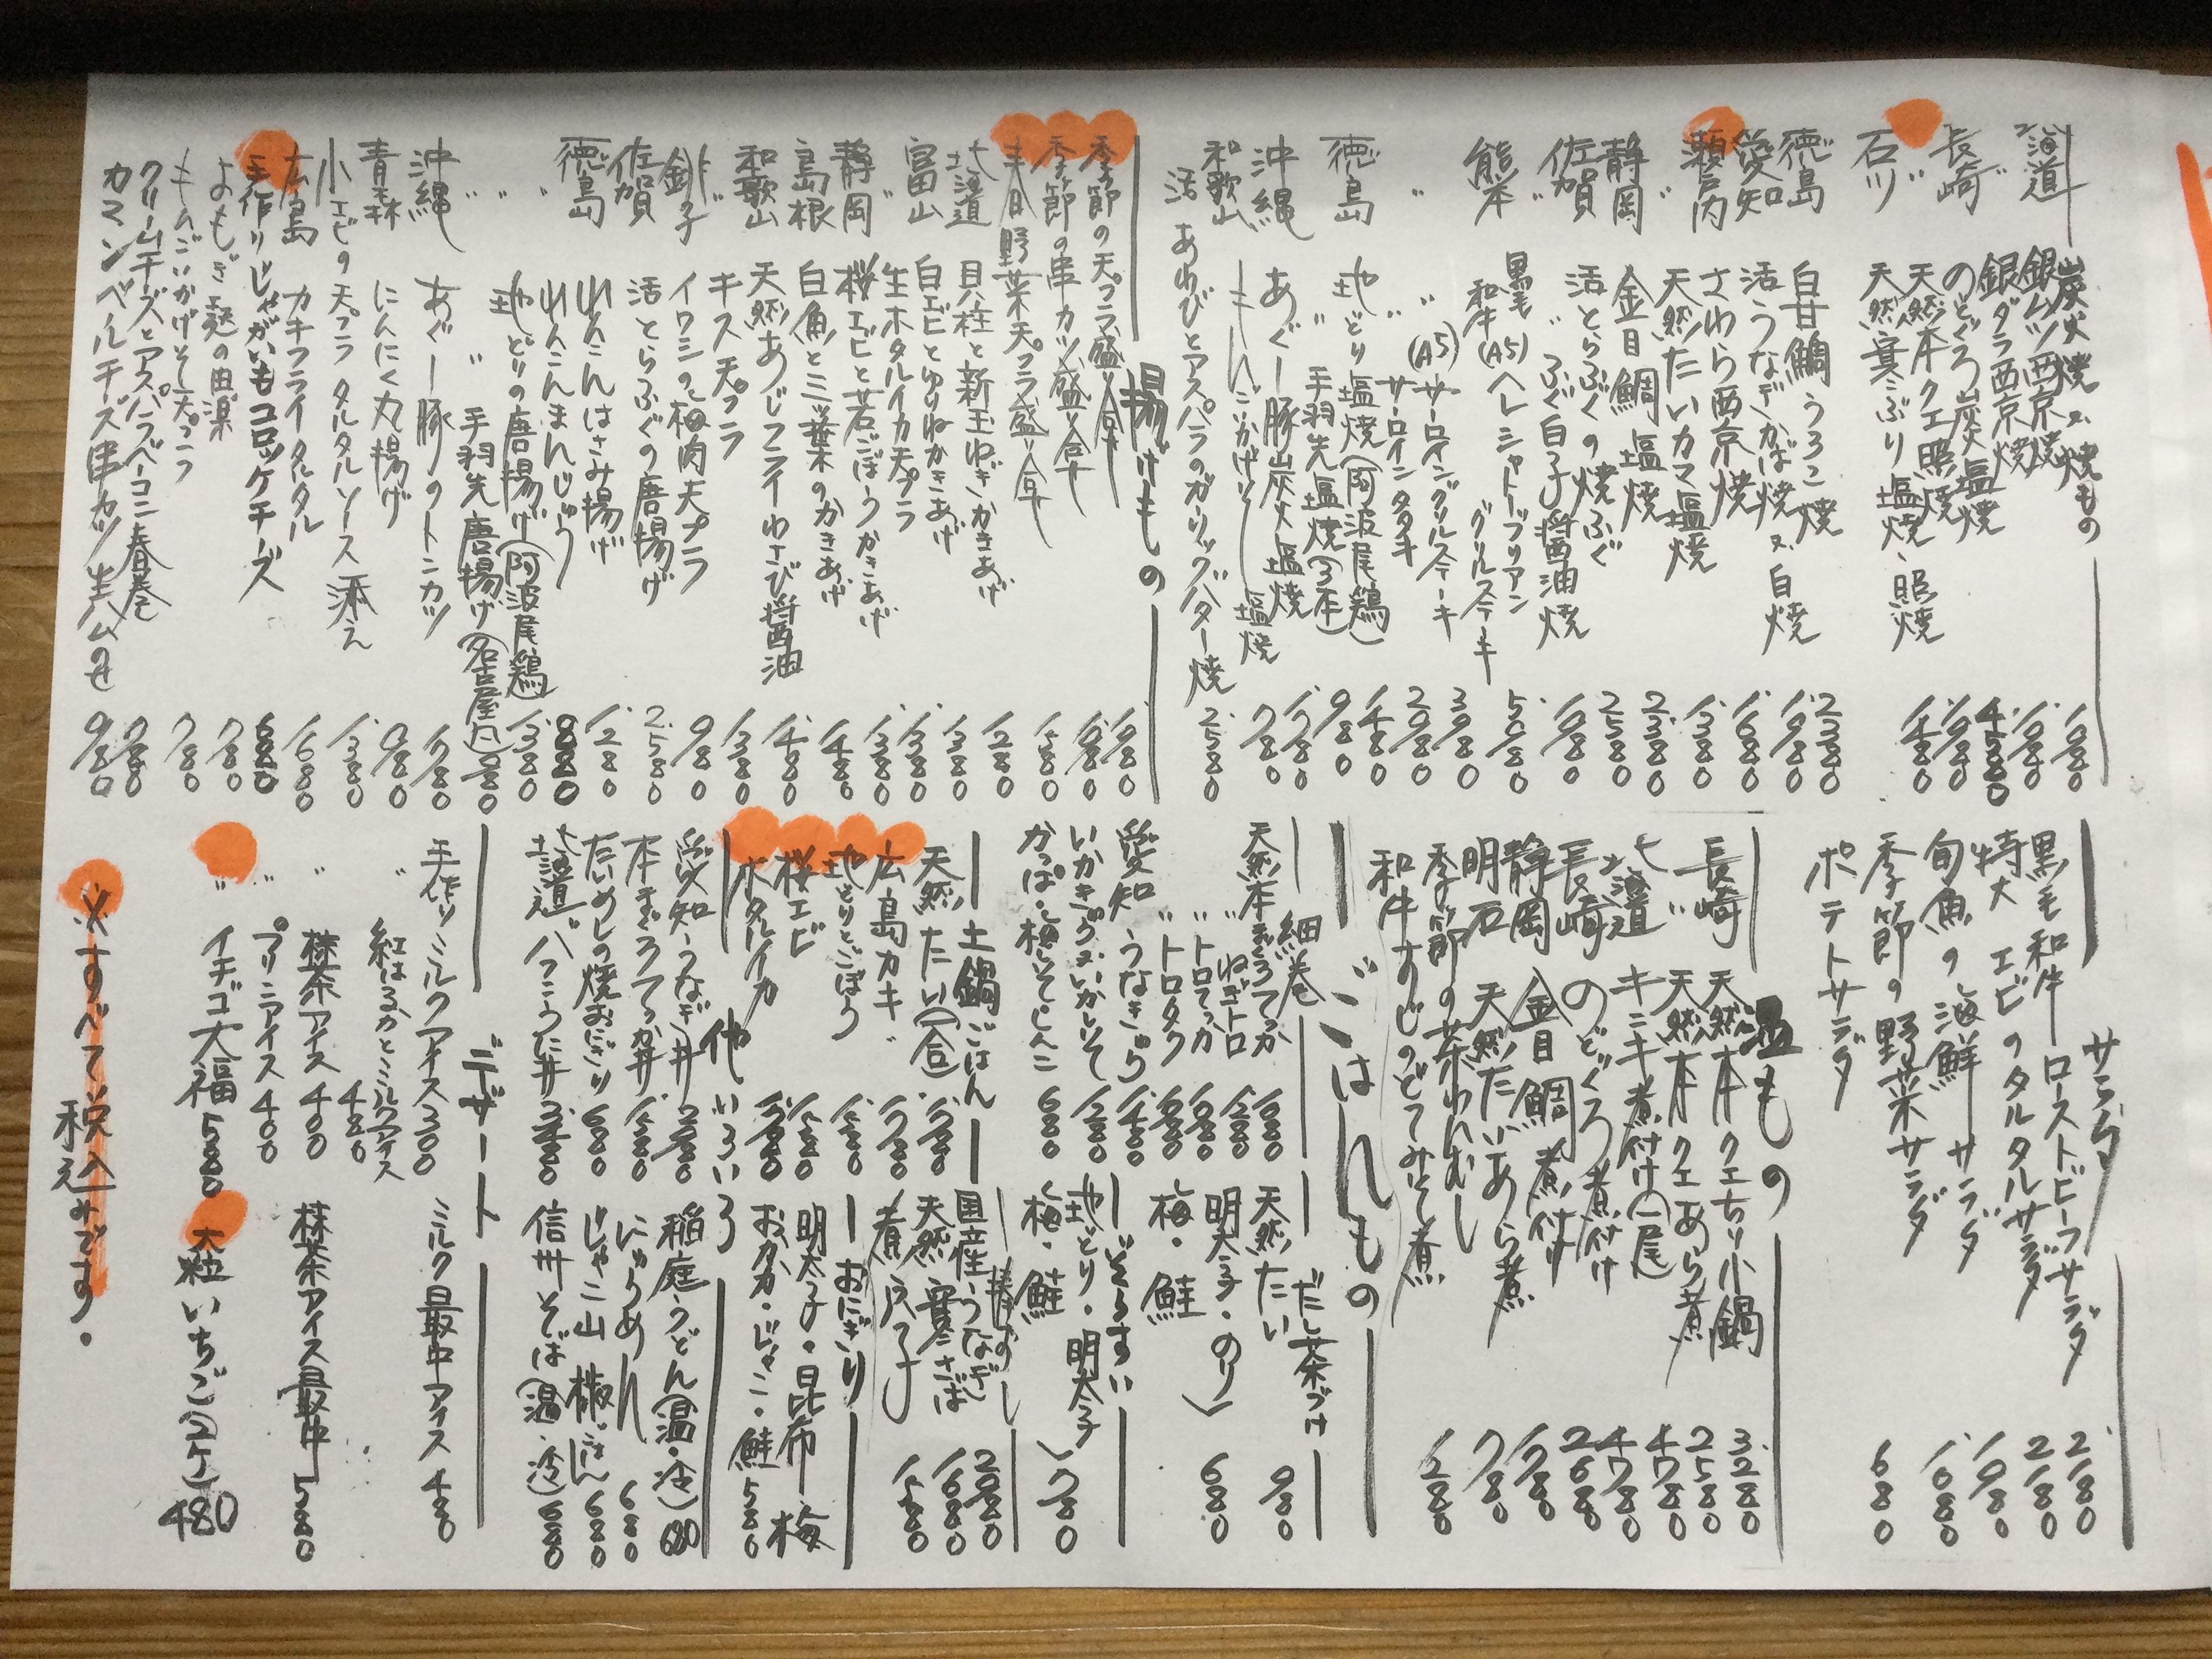 炭火焼又焼もの
北海道 銀ムツ西京焼 1,980
〃 銀ダラ西京焼 1,980
長崎 のどぐろ炭火塩焼 4,580
〃 天然本クエ照焼 1,980
石川 天然寒ぶり塩焼、照焼 1,480
徳島 白甘鯛うろこ焼 2,380
愛知 活うなぎかば焼又白焼
瀬戸内 さわら西京焼 1,680
天然たいカマ塩焼 1,380
静岡 金目鯛塩焼 2,380
佐賀 活とらふぐの焼ふぐ 2,580
〃 〃 ふぐ白子醤油焼 1,980
熊本 黒毛和牛(A5)ヘレシャトーブリアングリルステーキ
〃 〃(A5)サーロイングリルステーキ 3,980
サーロインタタキ 2,980
徳島 地どり塩焼(阿波尾鶏) 1,480
〃 手羽先塩焼(3本) 980
沖縄 あぐー豚炭火塩焼 1,780
もんごいかげそ塩焼 780
和歌山 活あわびとアスパラのガーリックバター焼 2,580
揚げもの
季節の天プラ盛り合せ 1,980
季節の串カツ盛り合せ 1,980
春野菜天プラ盛り合せ 1,580
北海道 貝柱と新玉ねぎかきあげ 1,280
富山 白エビとゆりねかきあげ 1,380
〃 生ホタルイカ天プラ 1,380
静岡 桜エビと若ごぼうかきあげ 1,380
島根 白魚と三つ葉のかきあげ 1,480
和歌山 天然あじフライわさび醤油 1,480
キス天プラ 1,380
銚子 イワシの梅肉天プラ 980
佐賀 活とらふぐの唐揚げ 2,580
れんこんはさみ揚げ 1,280
れんこんまんじゅう 880
徳島 地どりの唐揚げ(阿波尾鶏) 1,380
〃 〃 手羽先唐揚げ(名古屋風)
沖縄 あぐー豚のトンカツ 1,780
青森 にんにく丸揚げ 980
小エビの天プラタルタルソース添え 1,380
広島 カキフライタルタル 1,680
手作りじゃがいもコロッケチーズ 680
よもぎ麩の田楽 780
もんごいかげそ天プラ 780
クリームチーズとアスパラベーコン春巻 780
カマンベールチーズ串カツ生ハムのせ 980
サラダ
黒毛和牛ローストビーフサラダ 2,180
特大エビのタルタルサラダ 2,180
旬魚の海鮮サラダ 1,980
季節の野菜サラダ 1,680
ポテトサラダ 680
温もの
長崎 天然本クエちり小鍋 3,280
〃 天然本クエあら煮 2,580
北海道 キンキ煮付け(一尾) 4,780
長崎 のどぐろ煮付け 4,780
静岡 金目鯛煮付け 2,680
明石 天然たいあら煮 1,780
季節の茶わんむし 780
和牛すじのどてみそ煮 1,280
ごはんもの
細巻
天然本まぐろてっか 1,680
〃 ねぎトロ 1,280
〃 トロてっか
〃 トロタク
愛知 うなきゅう 1,480
いかきゅう又いかしそ 1,280
かっぱ・梅しそしんこ 680
だし茶づけ
天然たい 980
明太子・のり
梅・鮭 680
ぞうすい
地どり・明太子
梅・鮭 780
土鍋ごはん
天然たい(一合) 1,780
広島カキ 1,780
地どりとごぼう 1,580
桜エビ 1,580
ホタルイカ
棒すし
国産うなぎ 2,980
天然寒さば 1,680
煮穴子 1,580
おにぎり
明太子・昆布・梅
おかか・じゃこ・鮭 580
他いろいろ
愛知うなぎ丼
本まぐろてっか丼
たいめしの焼おにぎり 680
北海道バフンうに丼
稲庭うどん(温・冷) 680
にゅうめん 680
じゃこ山椒ごはん 680
信州そば(温・冷) 680
デザート
手作りミルクアイス 300
〃 紅はるかとミルクアイス 480
〃 抹茶アイス 400
〃 プリンアイス 400
〃 イチゴ大福 580
ミルク最中アイス 480
抹茶アイス最中 580
大粒いちご(2ケ) 480
※すべて税込みです。